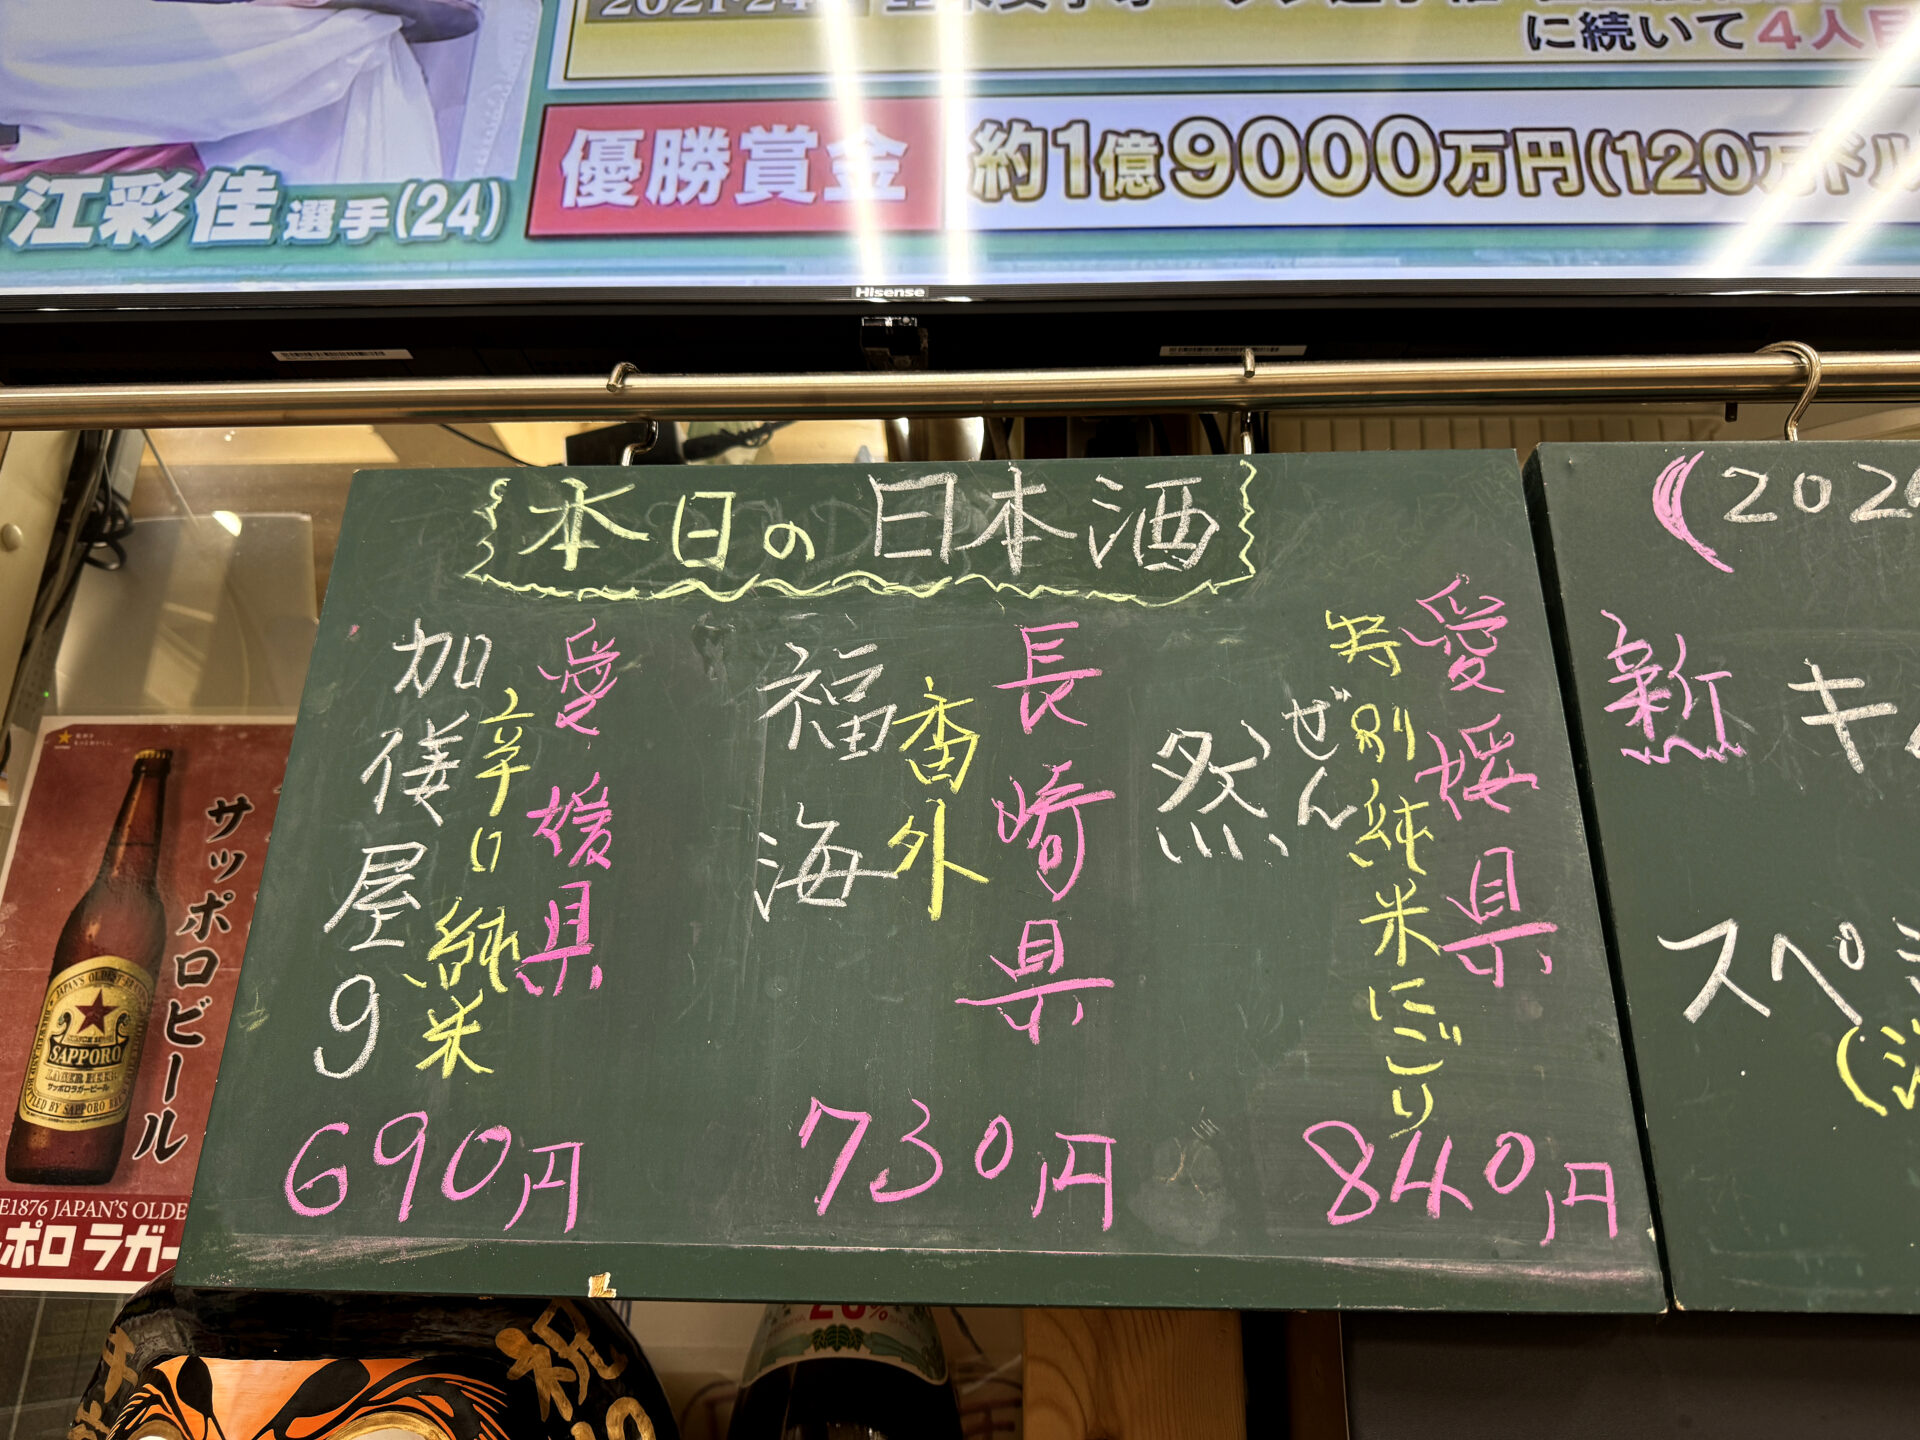 2021-24
に続いて4人目
江彩佳選手(24)
優勝賞金
約1億9000万円(120万ドル
Hisense
本日の日本酒
愛媛県
特別純米にごり
ぜん
然
840円
長崎県
番外
福海
730円
愛媛県
辛口純米
加儀屋9
690円
(202
新
キ
スペシ
サッポロビール
JAPAN'S OLDEST BRAND
SAPPORO
LAGER BEER
サッポロラガービール
E1876 JAPAN'S OLDE
ポロ ラガー
祝
20%